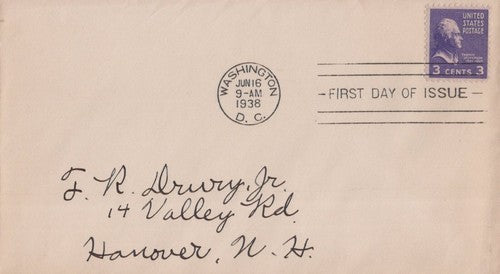 UNITED
STATES
POSTAGE
3 CENTS 3
WASHINGTON
JUN 16
9-AM
1938
D. C.
FIRST DAY OF ISSUE
F. R. Drury, Jr.
14 Valley Rd.
Hanover, N. H.